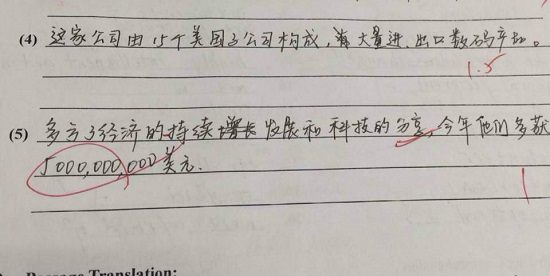 (4) 这家公司由15个美国子公司构成,有大量进、出口数码产品。
1.5
(5) 多亏了经济的持续增长发展和科技的分享,今年他们多获
5000,000,000美元.
1
Passage Translation: